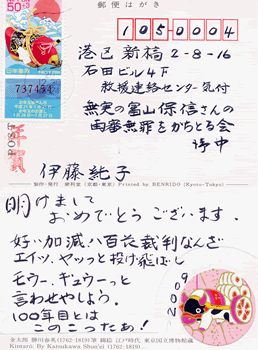 郵便はがき
50+3
日本郵便
737454
105 0004
年賀
港区新橋2-8-16
石田ビル4F
救援連絡センター気付
無実の富山保信さんの
再審無罪をかちとる会
御中
伊藤純子
製作・発行 便利堂(京都・東京) Printed by BENRIDO (Kyoto・Tokyo)
明けまして
おめでとうございます.
好い加減八百長裁判なんぞ
エイッ、ヤッっと投げ飛ばし
モウー、ギュウーっと
言わせやしよう。
100年目とは
このこったあ!
2009
金太郎 勝川春英(1762-1819)筆 錦絵 江戸時代 東京国立博物館蔵
Kintarō. By Katsukawa Shun'ei (1762-1819).